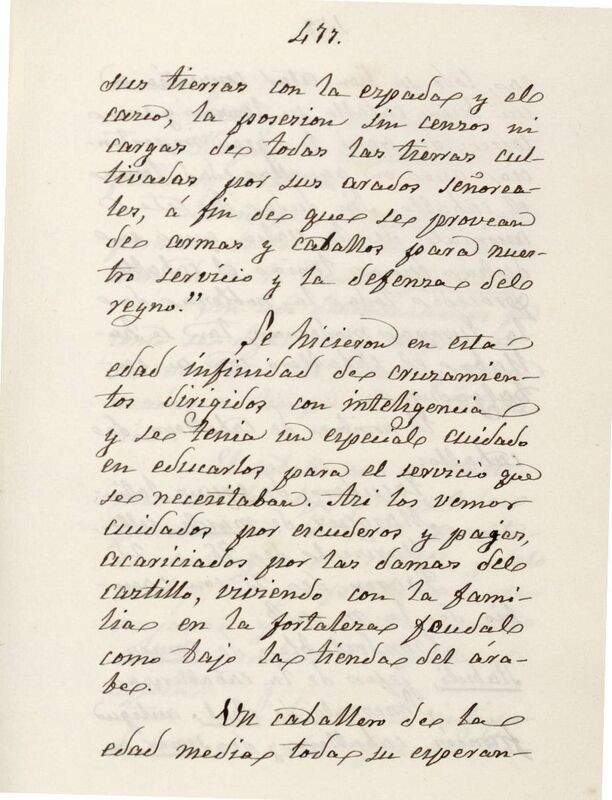 477.
sus tierras con la espada y el
casco, la posesion sin censos ni
cargas de todas las tierras cul-
tivadas por sus arados señorea-
les, á fin de que se provean
de armas y caballos para nues-
tro servicio y la defensa del
reyno."
Se hicieron en esta
edad infinidad de cruzamien-
tos dirigidos con inteligencia
y se tenia un especial cuidado
en educarlos para el servicio que
se necesitaban. Asi los vemos
cuidados por escuderos y pages,
acariciados por las damas del
castillo, viviendo con la fami-
lia en la fortaleza feudal
como bajo la tienda del ára-
be.
Un caballero de la
edad media toda su esperan-